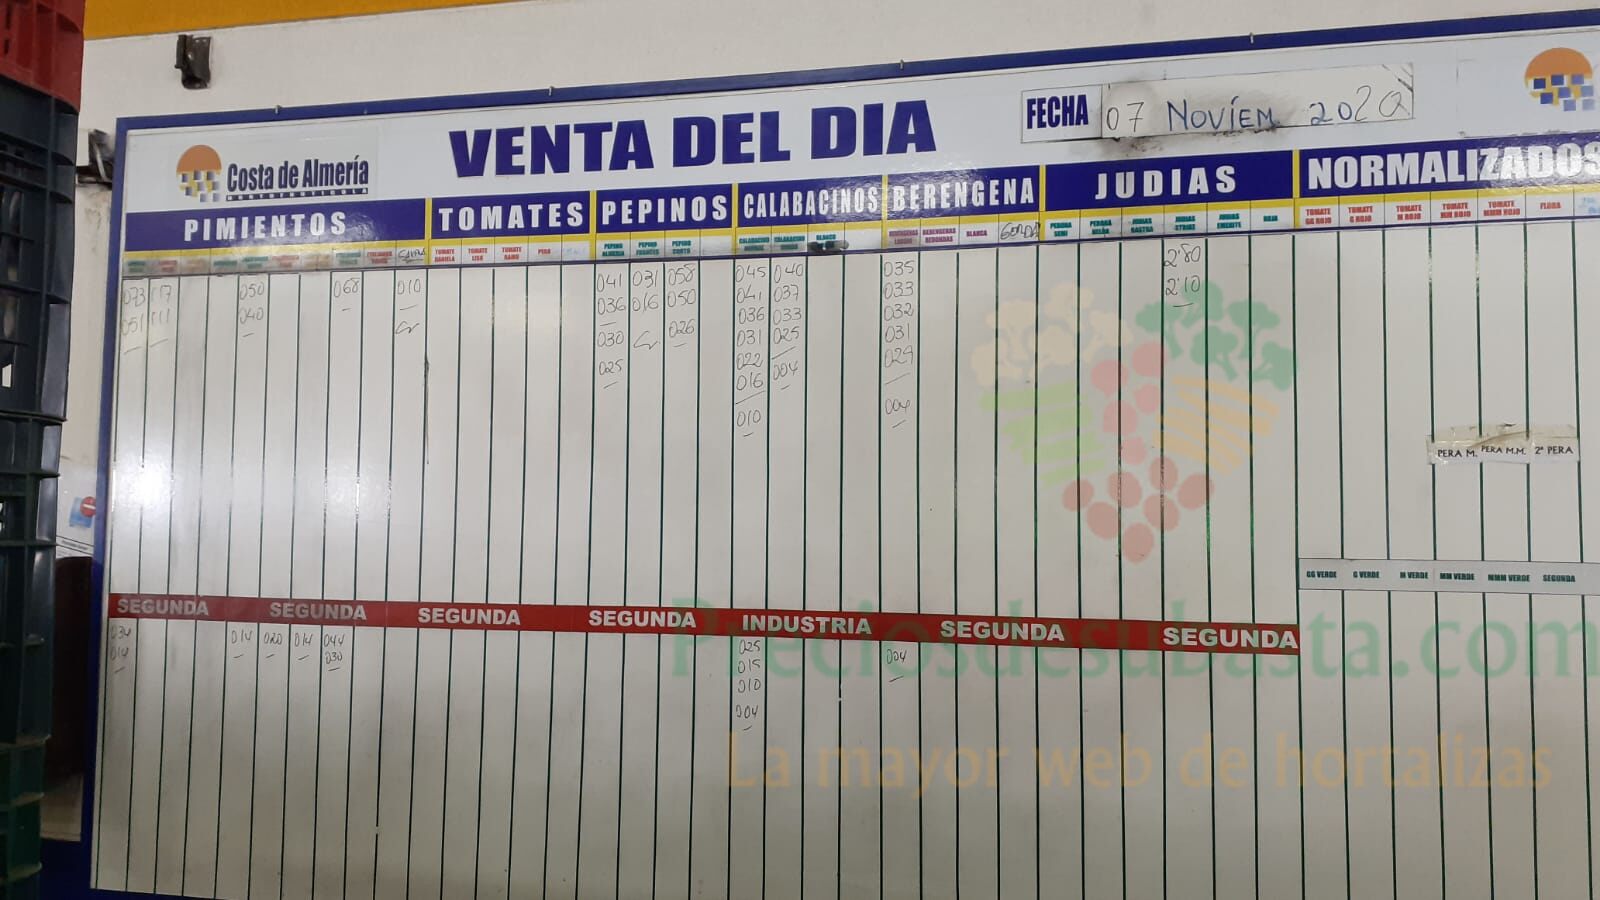 VENTA DEL DIA
FECHA 07 NOVIEM 2020
Costa de Almería
PIMIENTOS TOMATES PEPINOS CALABACINOS BERENGENA JUDIAS NORMALIZADOS
TOMATE DANIELA TOMATE LISA TOMATE RAMO PERA
PEPINO ALMERIA PEPINO FRANCES PEPINO CORTO
BLANCO
BERENGENAS REDONDAS BLANCA GORDA
PERONA SEMI JUDIAS RASTRA JUDIAS STRIAS JUDIAS EMERITE ROJA
TOMATE GG ROJO TOMATE G ROJO TOMATE M ROJO TOMATE MM ROJO TOMATE MMM ROJO FLORA
073 117 050 068 010 041 031 058 045 040 035 2'80
051 111 040 036 016 050 041 037 033 2'10
036 033 032
030 026 031 025 031
025 022 004 029
016
010 004
PERA M. PERA M.M. 2ª PERA
GG VERDE G VERDE M VERDE MM VERDE MMM VERDE SEGUNDA
SEGUNDA SEGUNDA SEGUNDA SEGUNDA INDUSTRIA SEGUNDA SEGUNDA
034 014 020 014 044 025 004
014 030 015
010
004
Preciosdesubasta.com
La mayor web de hortalizas